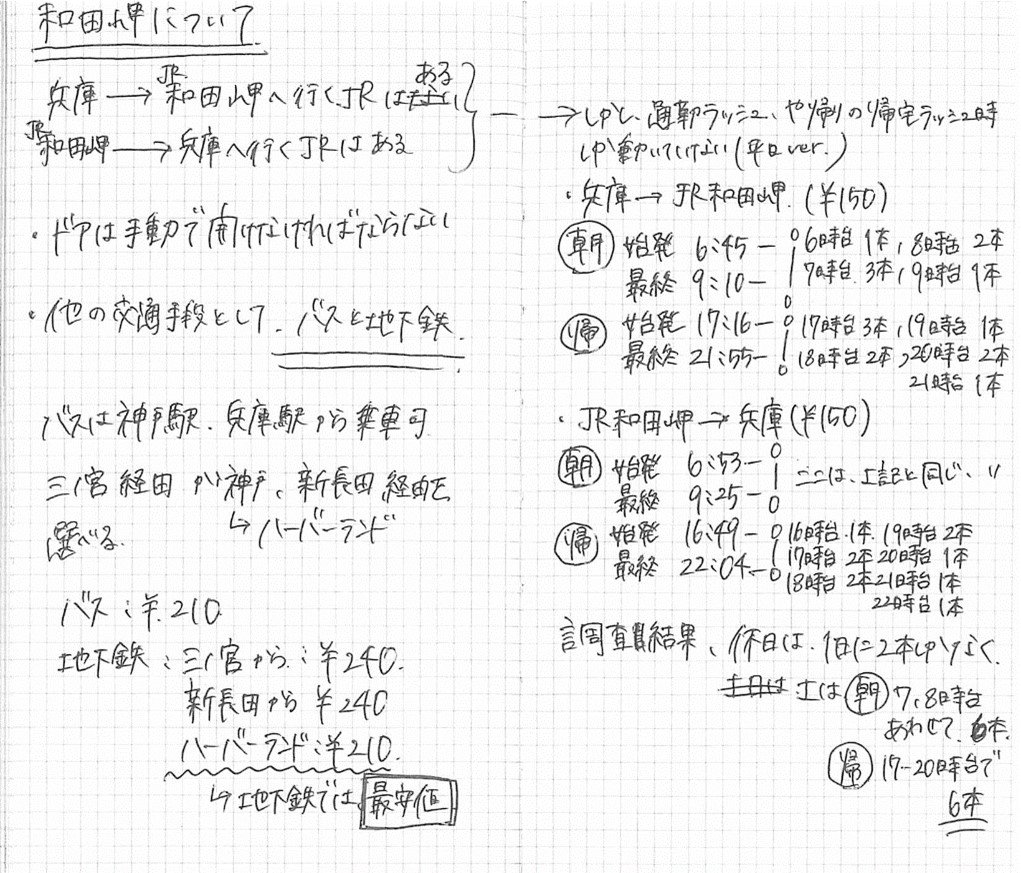 和田岬について
兵庫→JR和田岬へ行くJRはある
JR和田岬→兵庫へ行くJRはある
・ドアは手動で開けなければならない
・他の交通手段として、バスと地下鉄.
バスは神戸駅、兵庫駅から乗車可
三ノ宮経由か神戸、新長田経由を
↳ハーバーランド
選べる.
バス:¥210
地下鉄:三ノ宮から:¥240.
新長田から ¥240
ハーバーランド:¥210.
↳地下鉄では、最安値
→しかし、通勤ラッシュ、や帰りの帰宅ラッシュ時
しか動いていない(平日ver.)
・兵庫→JR和田岬.(¥150)
朝 始発 6:45 6時台 1本, 8時台 2本
最終 9:10 7時台 3本, 9時台 1本
帰 始発 17:16 17時台 3本, 19時台 1本
最終 21:55 18時台 2本, 20時台 2本
21時台 1本
・JR和田岬→兵庫(¥150)
朝 始発 6:53 ここは、上記と同じ、〃
最終 9:25
帰 始発 16:49 16時台 1本. 19時台 2本
最終 22:04 17時台 2本 20時台 1本
18時台 2本 21時台 1本
22時台 1本
調査結果、休日は、1日に2本しかなく.
土日は 土は 朝 7,8時台
あわせて、6本.
帰 17-20時台で
6本